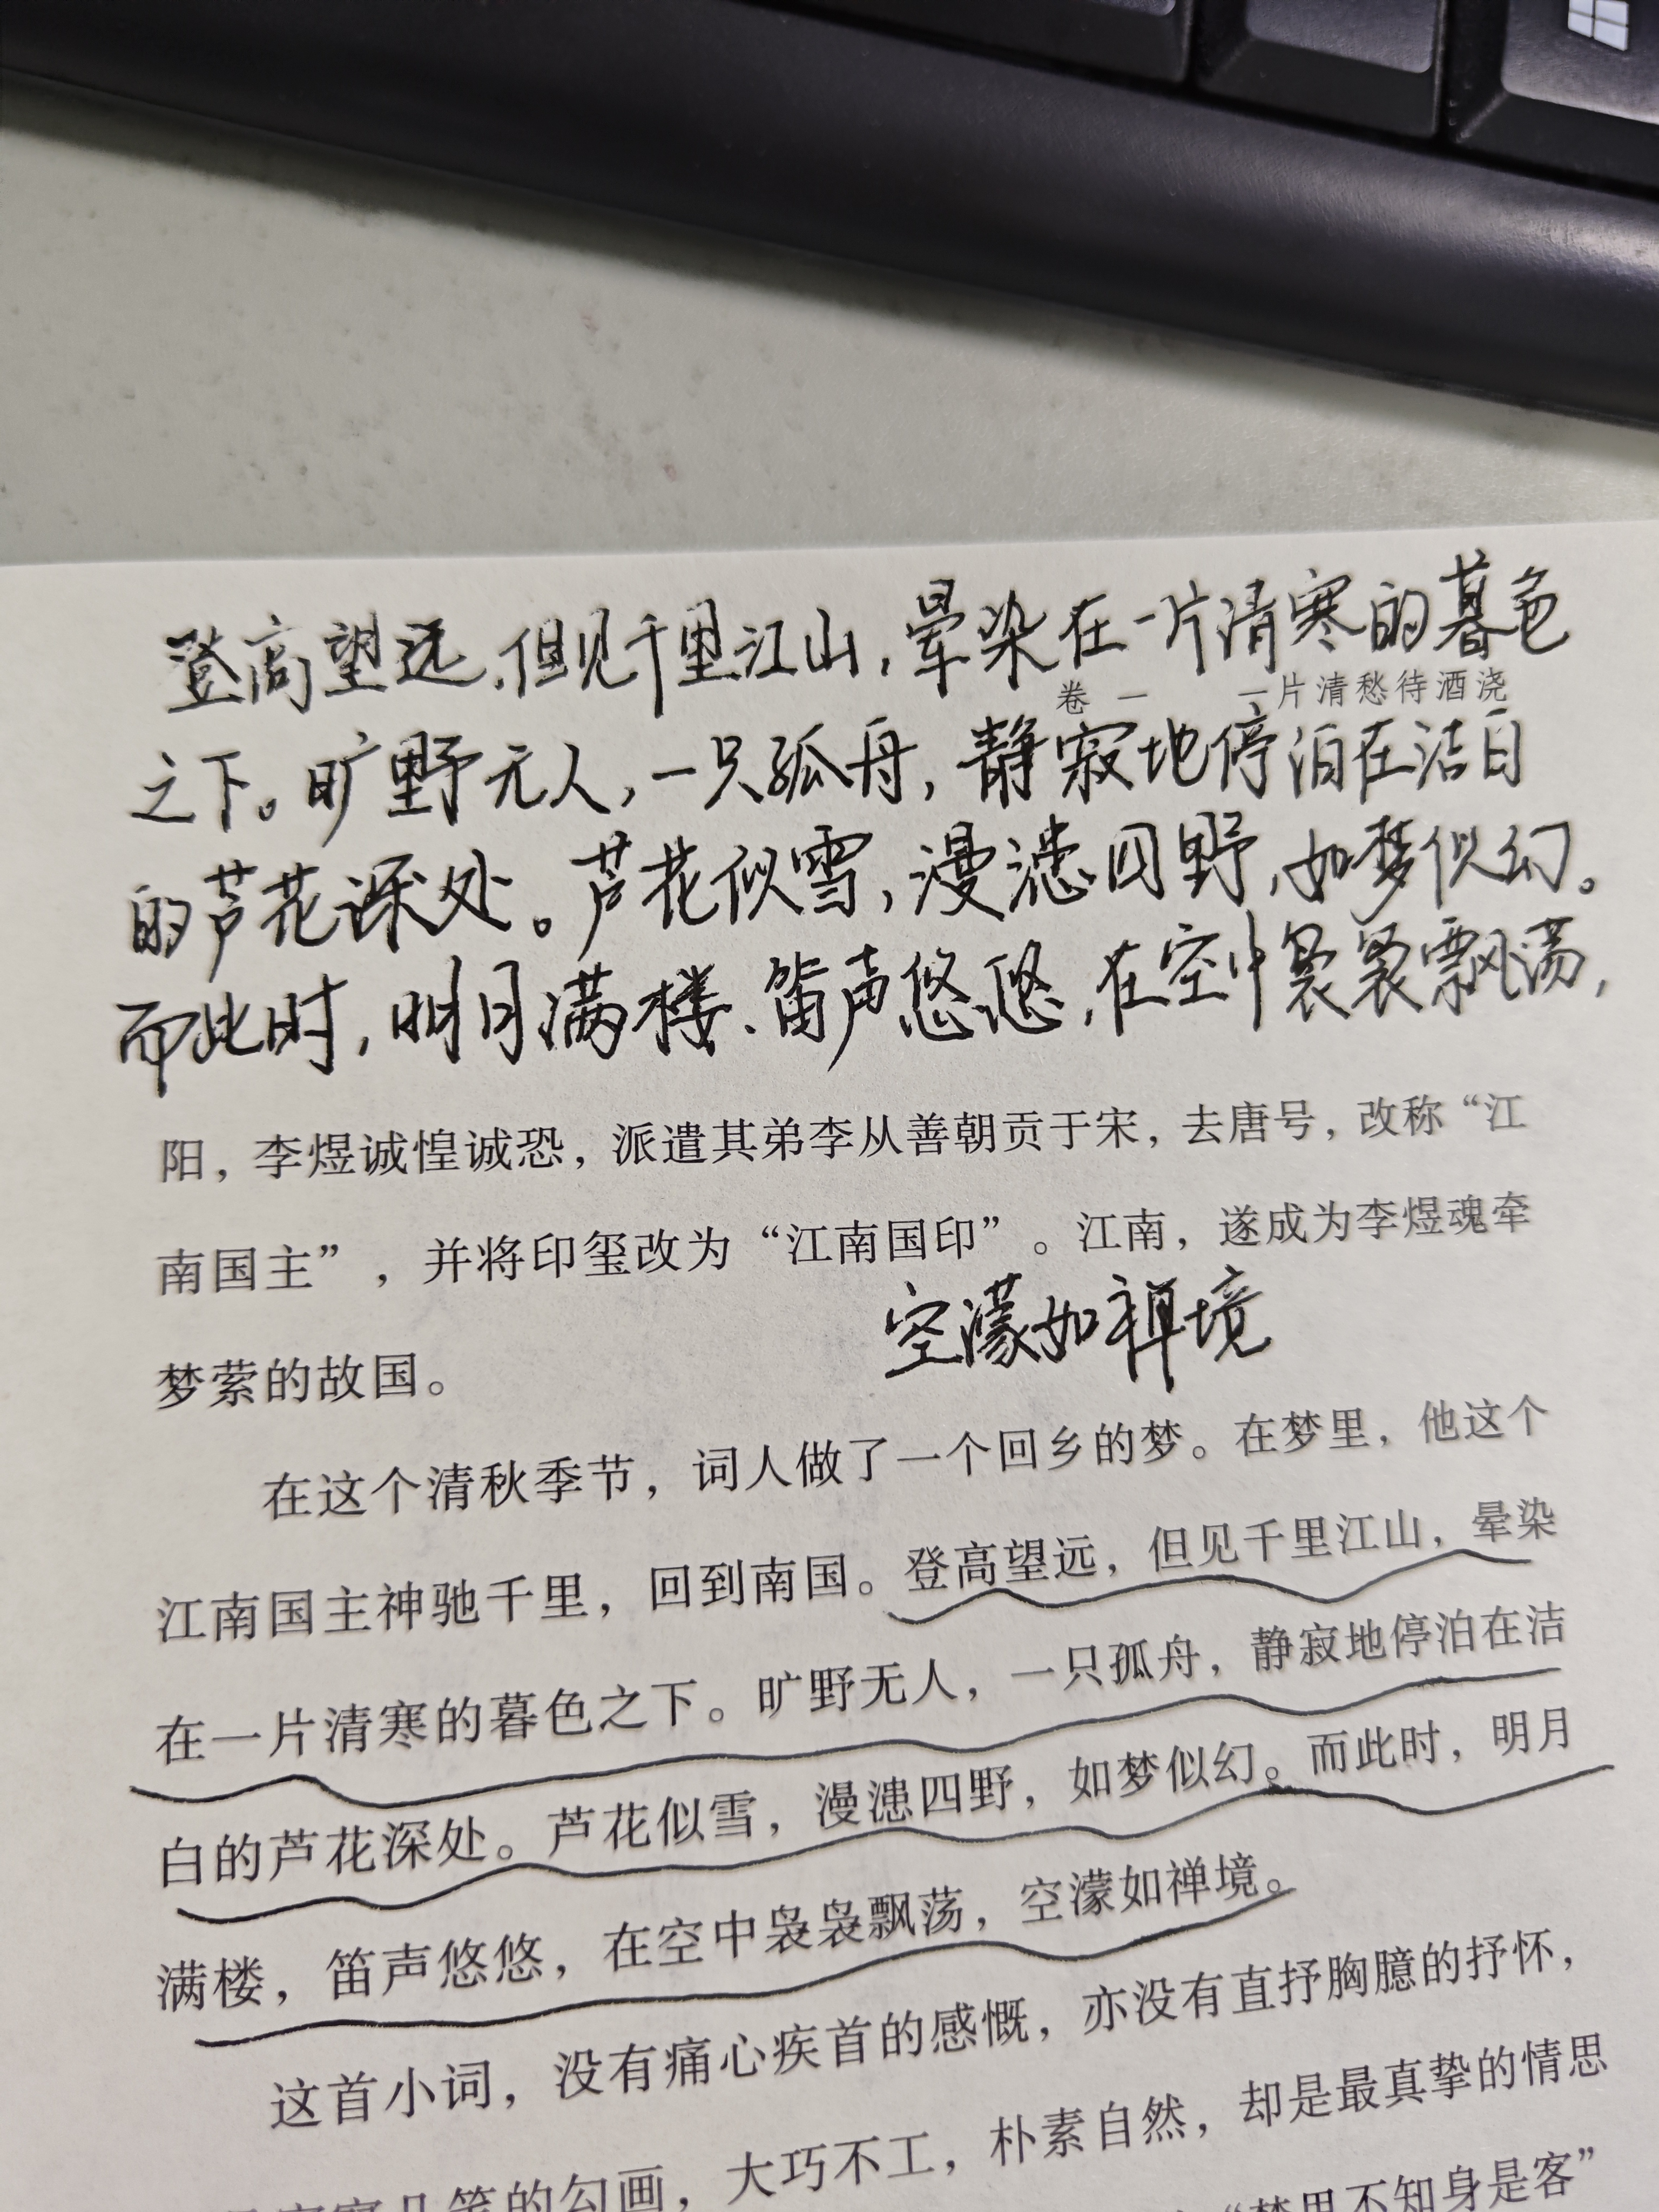 登高望远，但见千里江山，晕染在一片清寒的暮色
卷一 一片清愁待酒浇
之下。旷野无人，一只孤舟，静寂地停泊在洁白
的芦花深处。芦花似雪，漫漶四野，如梦似幻。
而此时，明月满楼、笛声悠悠，在空中袅袅飘荡，
阳，李煜诚惶诚恐，派遣其弟李从善朝贡于宋，去唐号，改称“江
南国主”，并将印玺改为“江南国印”。江南，遂成为李煜魂牵
空濛如禅境
梦萦的故国。
在这个清秋季节，词人做了一个回乡的梦。在梦里，他这个
江南国主神驰千里，回到南国。登高望远，但见千里江山，晕染
在一片清寒的暮色之下。旷野无人，一只孤舟，静寂地停泊在洁
白的芦花深处。芦花似雪，漫漶四野，如梦似幻。而此时，明月
满楼，笛声悠悠，在空中袅袅飘荡，空濛如禅境。
这首小词，没有痛心疾首的感慨，亦没有直抒胸臆的抒怀，
寥寥几笔的勾画，大巧不工，朴素自然，却是最真挚的情思
“梦里不知身是客”